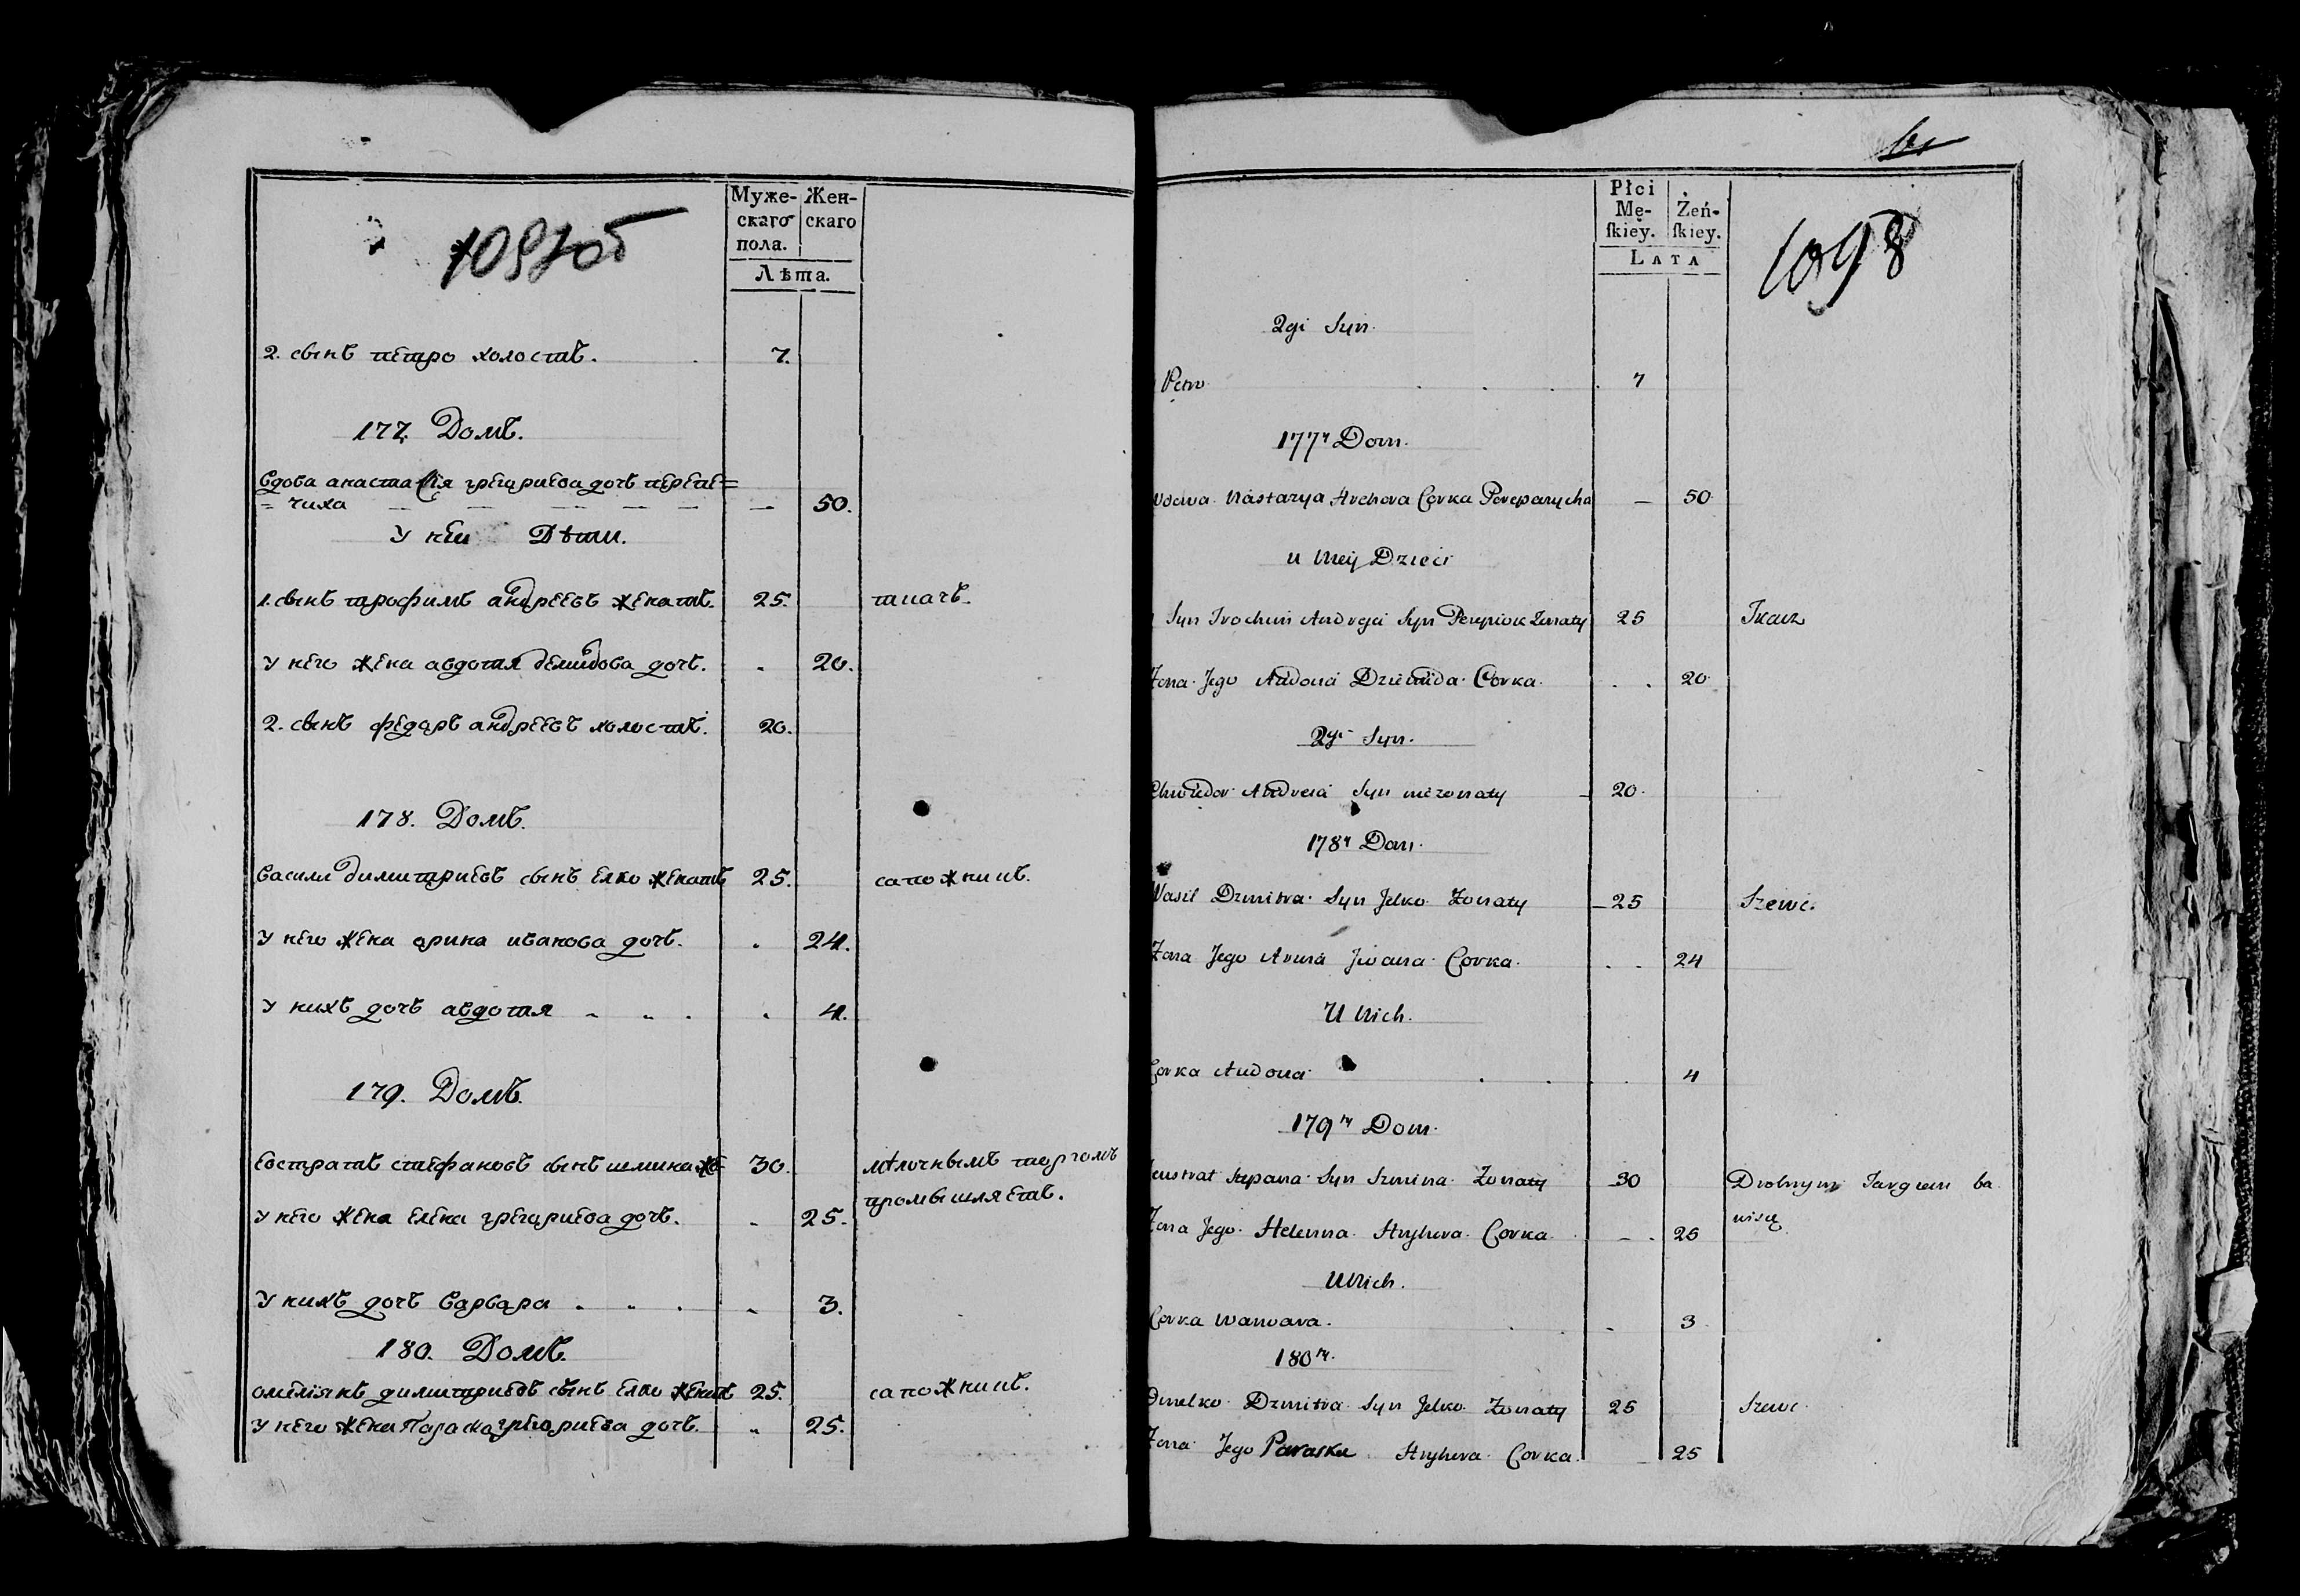 1097об
Муже-
скаго
пола.
Жен-
скаго
Лѣта.
2. сынъ петро холостъ. 7.
177. Домъ.
Вдова анастасія григориева дочъ перепе=
= чиха 50.
У неи Дѣти.
1. сынъ трофимъ андреевъ женатъ. 25. ткачъ.
У него жена авдотя демидова дочъ. 20.
2. сынъ федоръ андреевъ холостъ. 20.
178. Домъ.
Васили димитриевъ сынъ елко женатъ 25. сапожникъ.
У него жена орина иванова дочъ. 24.
У нихъ дочъ авдотя 4.
179. Домъ.
Евстратъ стефановъ сынъ шмина же 30. мѣлочнымъ торгомъ
промышляетъ.
У него жена елена григориева дочъ. 25.
У нихъ дочъ варвара 3.
180. Домъ.
омелянъ димитриевъ сынъ елко женатъ 25. сапожникъ.
У него жена Параска григориева дочъ. 25.
Płci
Mę-
ſkiey.
Żeń-
ſkiey.
LATA
1098
2gi Syn.
Petro 7
177y Dom.
Wdowa Nastazya Hrehora Corka Perepeczycha — 50
u Niey Dzieci
Syn Trochim Andreja Syn Żonaty 25 Tkacz
Żona Jego Audocia Dziemida Corka 20
2gi Syn.
Chwiedor Andreia Syn nieżonaty 20
178y Dom.
Wasil Dzmitra Syn Jelko Żonaty 25 Szewc.
Żona Jego Aryna Jwana Corka 24
U Nich.
Corka Audocia 4
179ty Dom.
Jeustrat Stepana Syn Szmina Żonaty 30 Drobnym Targiem ba
wi się
Żona Jego Helenna Hryhora Corka 25
U Nich.
Corka Warwara. 3
180ty.
Omelko Dzmitra Syn Jelko Żonaty 25 Szewc
Żona Jego Paraska Hryhora Corka 25